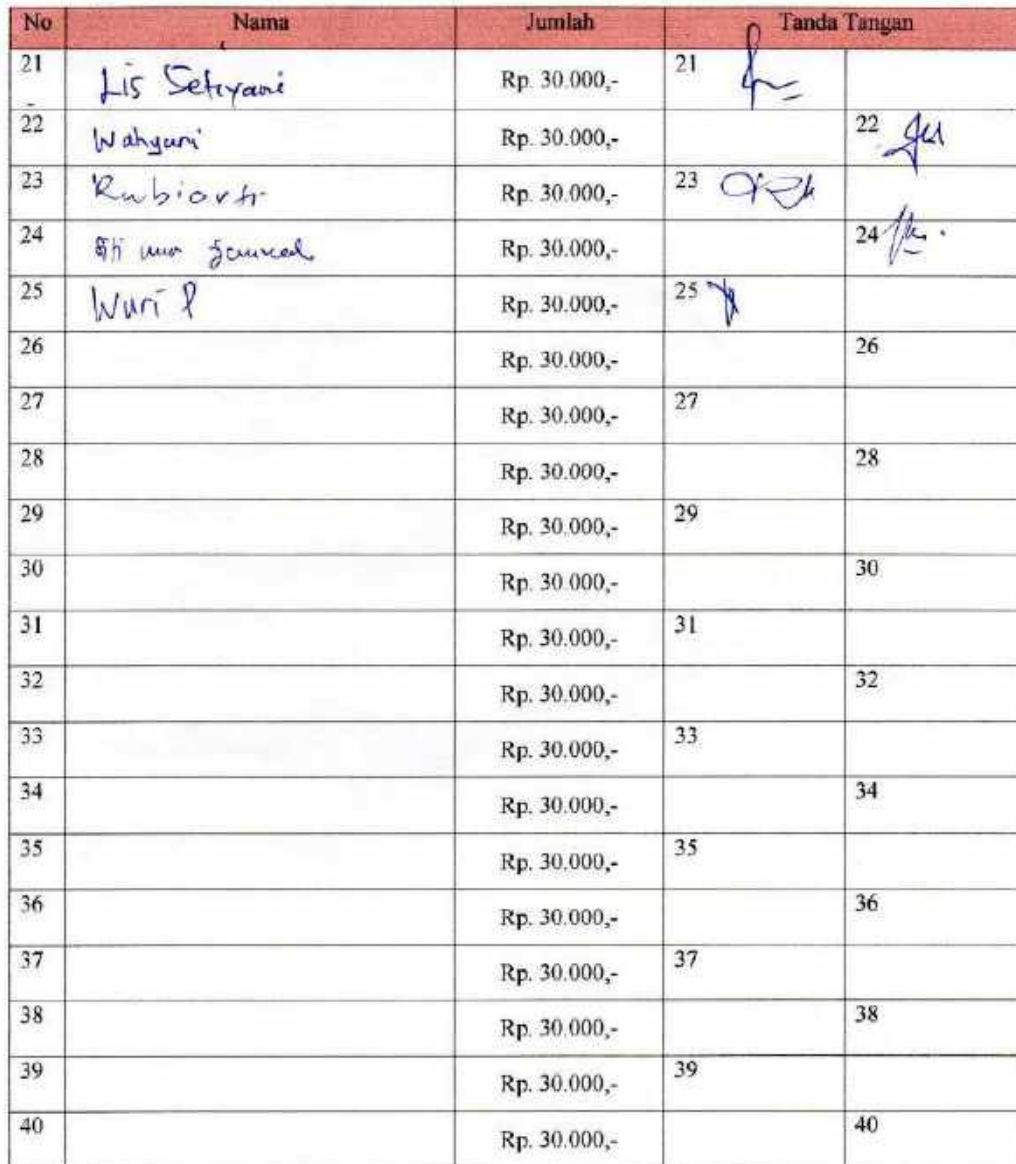 No Nama Jumlah Tanda Tangan
21 Lis Setiyani Rp. 30.000,- 21
22 Wahyuni Rp. 30.000,- 22
23 Rubiarti Rp. 30.000,- 23
24 Siti Rp. 30.000,- 24
25 Wuri P Rp. 30.000,- 25
26 Rp. 30.000,- 26
27 Rp. 30.000,- 27
28 Rp. 30.000,- 28
29 Rp. 30.000,- 29
30 Rp. 30.000,- 30
31 Rp. 30.000,- 31
32 Rp. 30.000,- 32
33 Rp. 30.000,- 33
34 Rp. 30.000,- 34
35 Rp. 30.000,- 35
36 Rp. 30.000,- 36
37 Rp. 30.000,- 37
38 Rp. 30.000,- 38
39 Rp. 30.000,- 39
40 Rp. 30.000,- 40